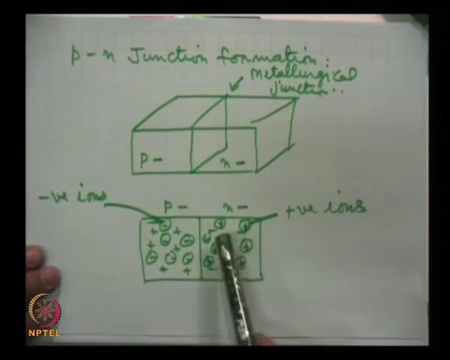 p-n Junction formation.
metallurgical
junction..
p- n-
-ve ions p- n- +ve ions
NPTEL